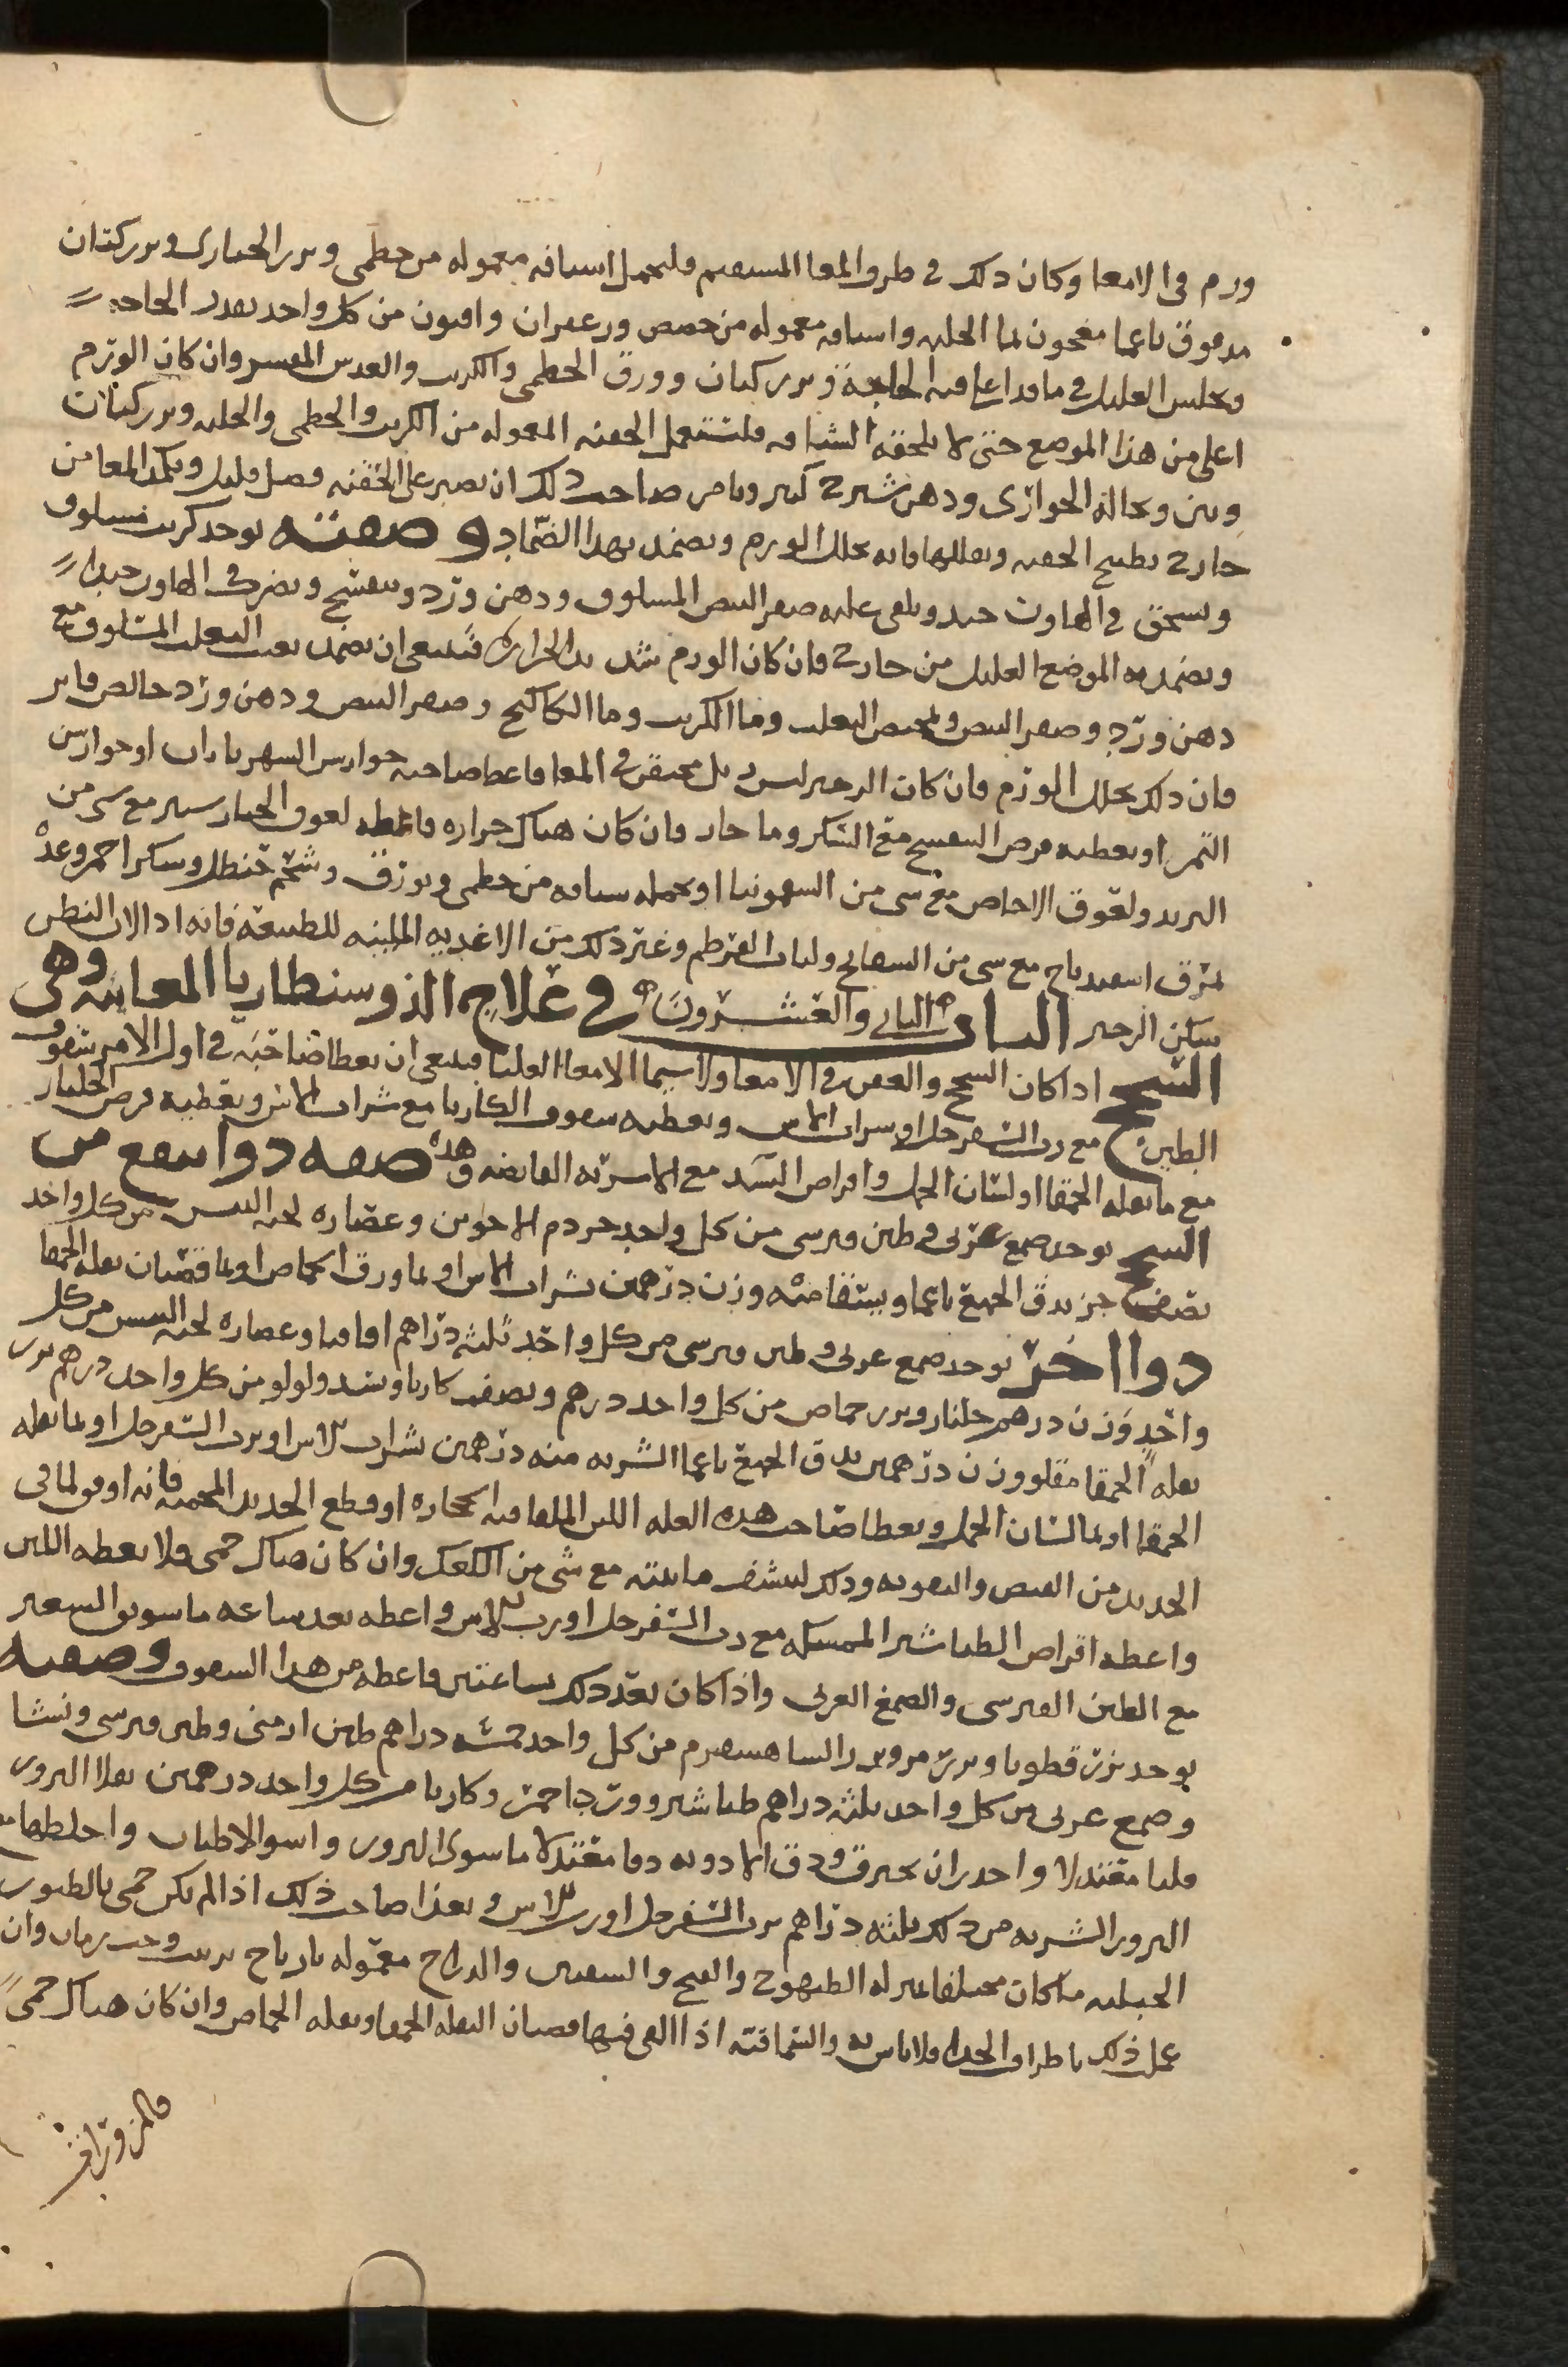 ورم في الامعا وكان ذلك في طرف المعا المستقيم فليحمل اشيافه معموله من خطمى وبزر الخبازى وبزر كتان
مدقوق ناعما معجون بما الحلبه واشيافه معموله من حضض وزعفران وافيون من كل واحد بقدر الحاجه
ويجلس العليل في ما قد اغلى فيه الحلبة وبزر كتان وورق الخطمى والكرنب والعدس المقشر وان كان الورم
اعلى من هذا الموضع حتى لا تلحقه الشيافه فلتستعمل الحقنه المعموله من الكرنب والخطمى والحلبه وبزر كتان
وتين ونخالة الحوارى ودهن شيرج كثير ويامر صاحب ذلك ان يصبر على الحقنه فضل قليل ويكمد المعا من
خارج بطبيخ الحقنه وثفلها فانه يحلل الورم ويضمد بهذا الضماد وصفته يوخذ كرنب مسلوق
ويسحق في الهاون جيد ويلقى عليه صفر البيض المسلوق ودهن ورد وبنفسج ويضرب في الهاون جيدا
ويضمد به الموضع العليل من خارج فان كان الورم شديد الحرارة فينبغى ان يضمد بعنب الثعلب المسلوق مع
دهن ورد وصفر البيض ويحقن بما عنب الثعلب وما الكرنب وما الكاكنج وصفر البيض ودهن ورد خالص فاتر
فان ذلك يحلل الورم فان كان الزحير لثفل محتقن في المعا فاعط صاحبه جوارش السهرياران او جوارش
التمر او يعطيه قرص البنفسج مع السكر وما حار فان كان هناك حراره فاعطيه لعوق الخيار شنبر مع شى من
التربد ولعوق الاجاص مع شى من السقمونيا او يحمله شيافه من خطمى وبورق وشحم حنظل وسكر احمر وغذه
بمرق اسفيدباج مع شى من البسفايج ولباب القرطم وغير ذلك من الاغذيه المليّنه للطبيعة فانه اذا لان البطن
سكن الزحير الباب الثانى والعشرون في علاج الذوسنطاريا المعايئه وهى
السحج اذا كان السحج والعقر في الامعا ولا سيما الامعا العليا فينبغى ان يعطا صاحبه في اول الامر سفوف
الطين مع رب السفرجل او شراب الاس ويعطيه سفوف الكاربا مع شراب الاس ويعطيه قرص الجلنار
مع ما بقله الحمقا او لسان الحمل واقراص البسد مع الاشربه القابضه وهذه صفه دوا ينفع من
السحج يوخذ صمغ عربى وطين قبرسى من كل واحد جز دم الاخوين وعصاره لحيه التيس من كل واحد
نصف جز يدق الجميع ناعما ويستفا منه وزن درهمين بشراب الاس او بما ورق الحماص او بما قضبان بقله الحمقا
دوا اخر يوخذ صمغ عربى وطين قبرسى من كل واحد ثلثه دراهم اقاقيا وعصاره لحيه التيس من كل
واحد وزن درهم جلنار وبزر حماص من كل واحد درهم ونصف كاربا وبسد ولولو من كل واحد درهم بزر
بقله الحمقا مقلو وزن درهمين يدق الجميع ناعما الشربه منه درهمين بشراب الاس او برب السفرجل او بما بقله
الحمقا او بما لسان الحمل ويعطا صاحب هذه العله اللبن الملقا فيه الحجاره او قطع الحديد المحميه فانه اوفق لما في
الحديد من القبض والتقويه وذلك لينشف مائيته مع شى من الكعك وان كان هناك حمى فلا يعطه اللبن
واعطه اقراص الطباشير الممسكه مع رب السفرجل او رب الاس واعطه بعد ساعه ما سويق الشعير
مع الطين القبرسى والصمغ العربى واذا كان بعد ذلك بساعتين فاعطه من هذا السفوف وصفته
يوخذ بزر قطونا وبزر مرو وبزر الشاهسفرم من كل واحد خمسه دراهم طين ارمنى وطين قبرسى ونشا
وصمغ عربى من كل واحد ثلثه دراهم طباشير وورد احمر وكاربا من كل واحد درهمين يقلا البزور
قليا معتدلا واحذر ان يحترق ودق الادويه دقا معتدلا ما سوى البزور واسوا الاطيان واخلطها مع
البزور الشربه من ذلك ثلثه دراهم برب السفرجل او رب الاس ويغذا صاحب ذلك اذا لم يكن حمى بالطيور
الجبليه ما كان مجففا بمنزله الطيهوج والقبج والسفنين والدراج معموله نارباج بزبيب وحب رمان وان
عمل ذلك باطراف الجدا فلا باس به والسماقيه اذا القى فيها قضبان البقله الحمقا وبقله الحماص وان كان هناك حمى
فالمزورات